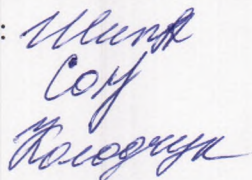 : Шипя
Сом
Колодчук